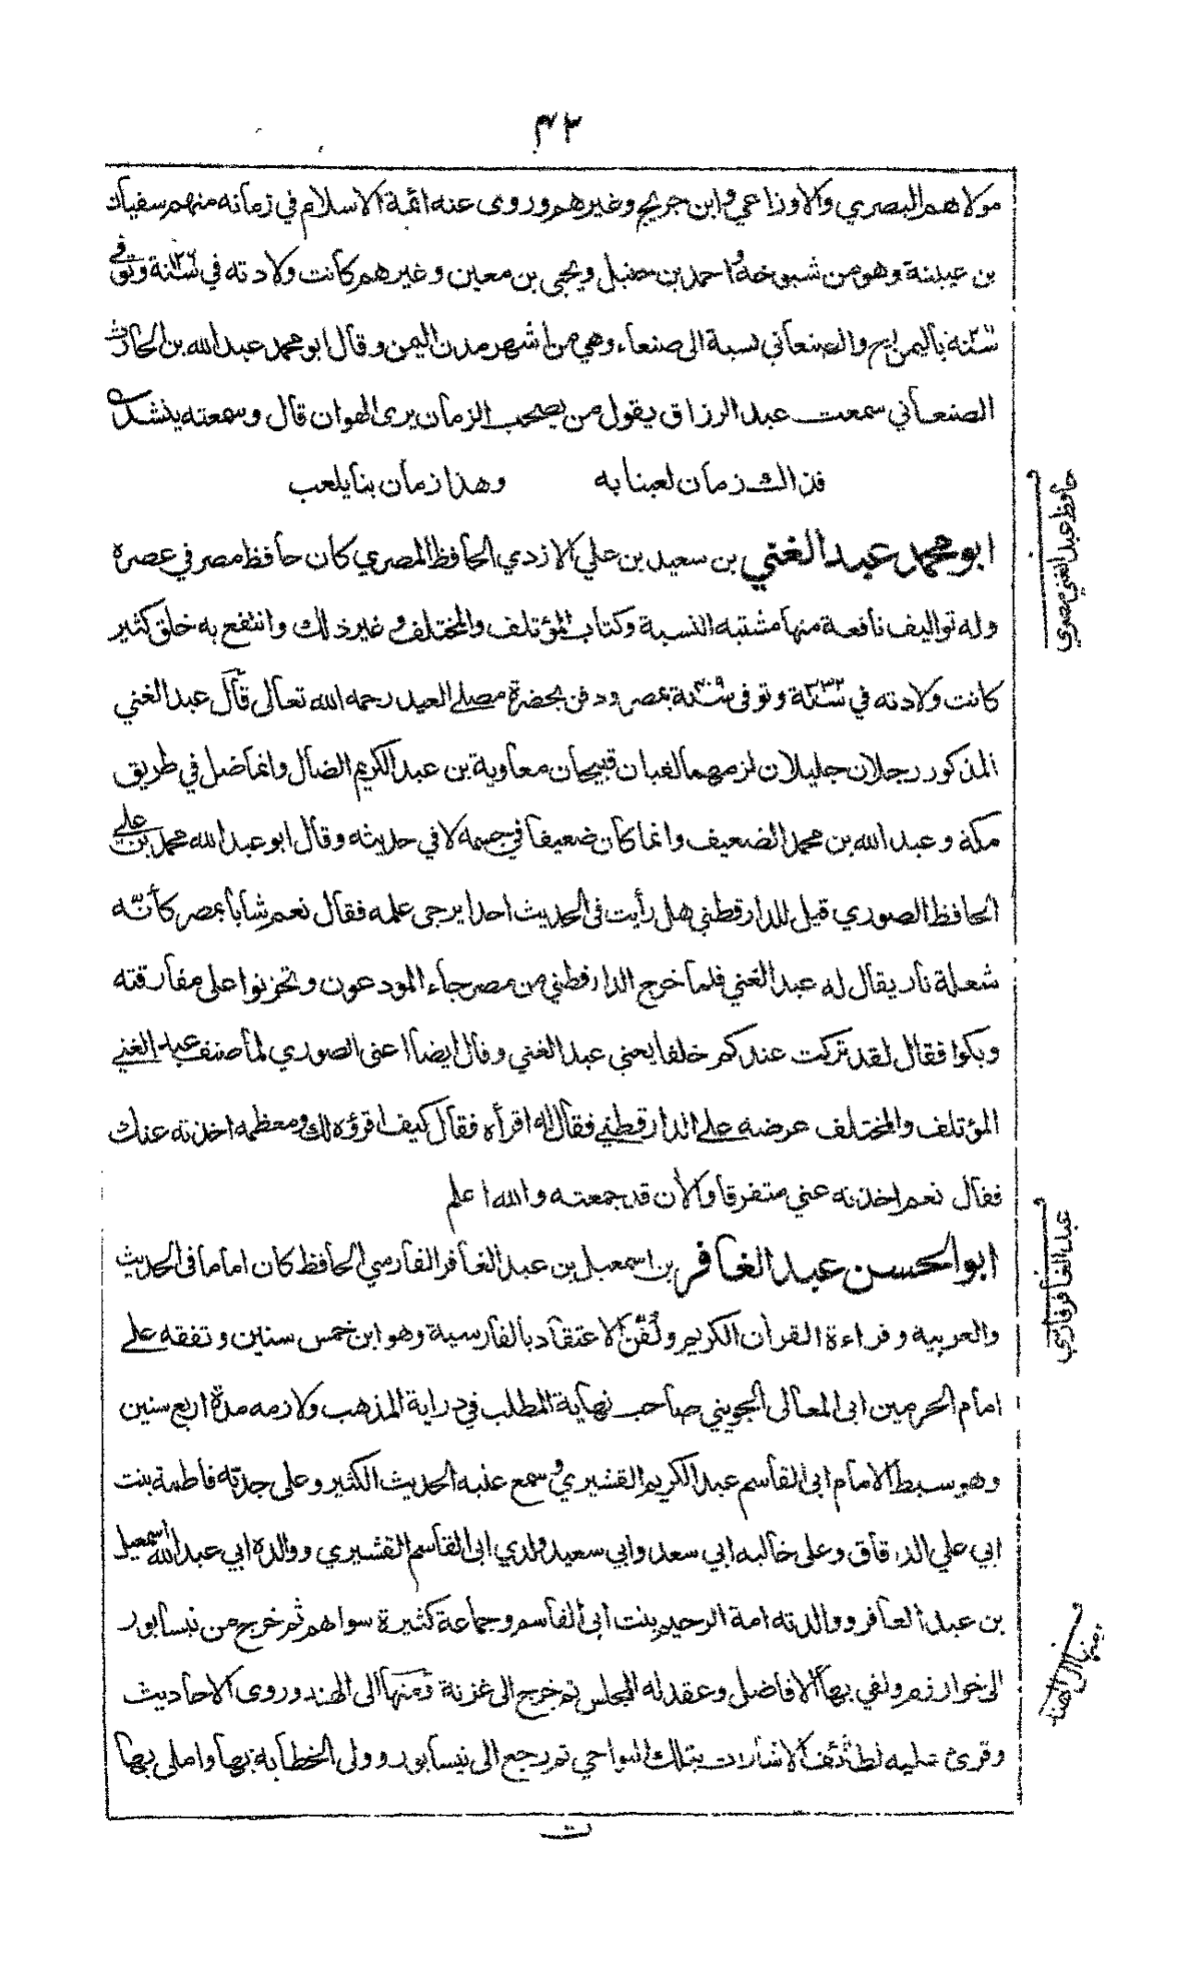 ٤٢
مولاهم البصري والاوزاعي وابن جريج وغيرهم وروى عنه ائمة الاسلام في زمانه منهم سفيان
بن عيينة وهو من شيوخه واحمد بن حنبل ويحيى بن معين وغيرهم كانت ولادته في سنة ١٢٦ وتوفي
سنة باليمن والصنعاني نسبة الى صنعاء وهي من اشهر مدن اليمن وقال ابو محمد عبد الله بن الحارث
الصنعاني سمعت عبد الرزاق يقول من يصحب الزمان يرى الهوان قال وسمعته ينشد
فذالك زمان لعبنا به وهذا زمان بنا يلعب
ابو محمد عبد الغني بن سعيد بن علي الازدي الحافظ المصري كان حافظ مصر في عصره
وله تواليف نافعة منها مشتبه النسبة وكتاب المؤتلف والمختلف وغير ذلك وانتفع به خلق كثير
كانت ولادته في سنة ٣٣٢ وتوفى سنة ٤٠٩ بمصر ودفن بحضرة مصلى العيد رحمه الله تعالى قال عبد الغني
المذكور رجلان جليلان لزمهما لقبان قبيحان معاوية بن عبد الكريم الضال وانما ضل في طريق
مكة وعبد الله بن محمد الضعيف وانما كان ضعيفا في جسمه لا في حديثه وقال ابو عبد الله محمد بن علي
الحافظ الصوري قيل للدارقطني هل رأيت في الحديث احدا يرجى علمه فقال نعم شابا بمصر كأنّه
شعلة نار يقال له عبد الغني فلما خرج الدارقطني من مصر جاء المودعون وتحزنوا على مفارقته
وبكوا فقال لقد تركت عندكم خلفا يعني عبد الغني وقال ايضا اعني الصوري لما صنف عبد الغني
المؤتلف والمختلف عرضه على الدارقطني فقال له اقرأه فقال كيف اقرؤه لك ومعظمه اخذته عنك
فقال نعم اخذته عني متفرقا والآن قد جمعته والله اعلم
ابو الحسن عبد الغافر بن اسمعيل بن عبد الغافر الفارسي الحافظ كان اماما في الحديث
والعربية وقراءة القران الكريم ولُقّن الاعتقاد بالفارسية وهو ابن خمس سنين وتفقه على
امام الحرمين ابى المعالى الجويني صاحب نهاية المطلب في دراية المذهب ولازمه مدة اربع سنين
وهو سبط الامام ابى القاسم عبد الكريم القشيري وسمع عليه الحديث الكثير وعلى جدته فاطمة بنت
ابي علي الدقاق وعلى خاليه ابي سعد وابي سعيد ولدي ابى القاسم القشيري ووالده ابي عبد الله اسمعيل
بن عبد الغافر ووالدته امة الرحيم بنت ابى القاسم وجماعة كثيرة سواهم ثم خرج من نيسابور
الى خوارزم ولقي بها الافاضل وعقد له المجلس ثم خرج الى غزنة ومنها الى الهند وروى الاحاديث
وقرئ عليه لطائف الاشارات بتلك النواحي ثم رجع الى نيسابور وولى الخطابة بها واملى بها
حافظ عبد الغني مصري
عبد الغافر فارسي